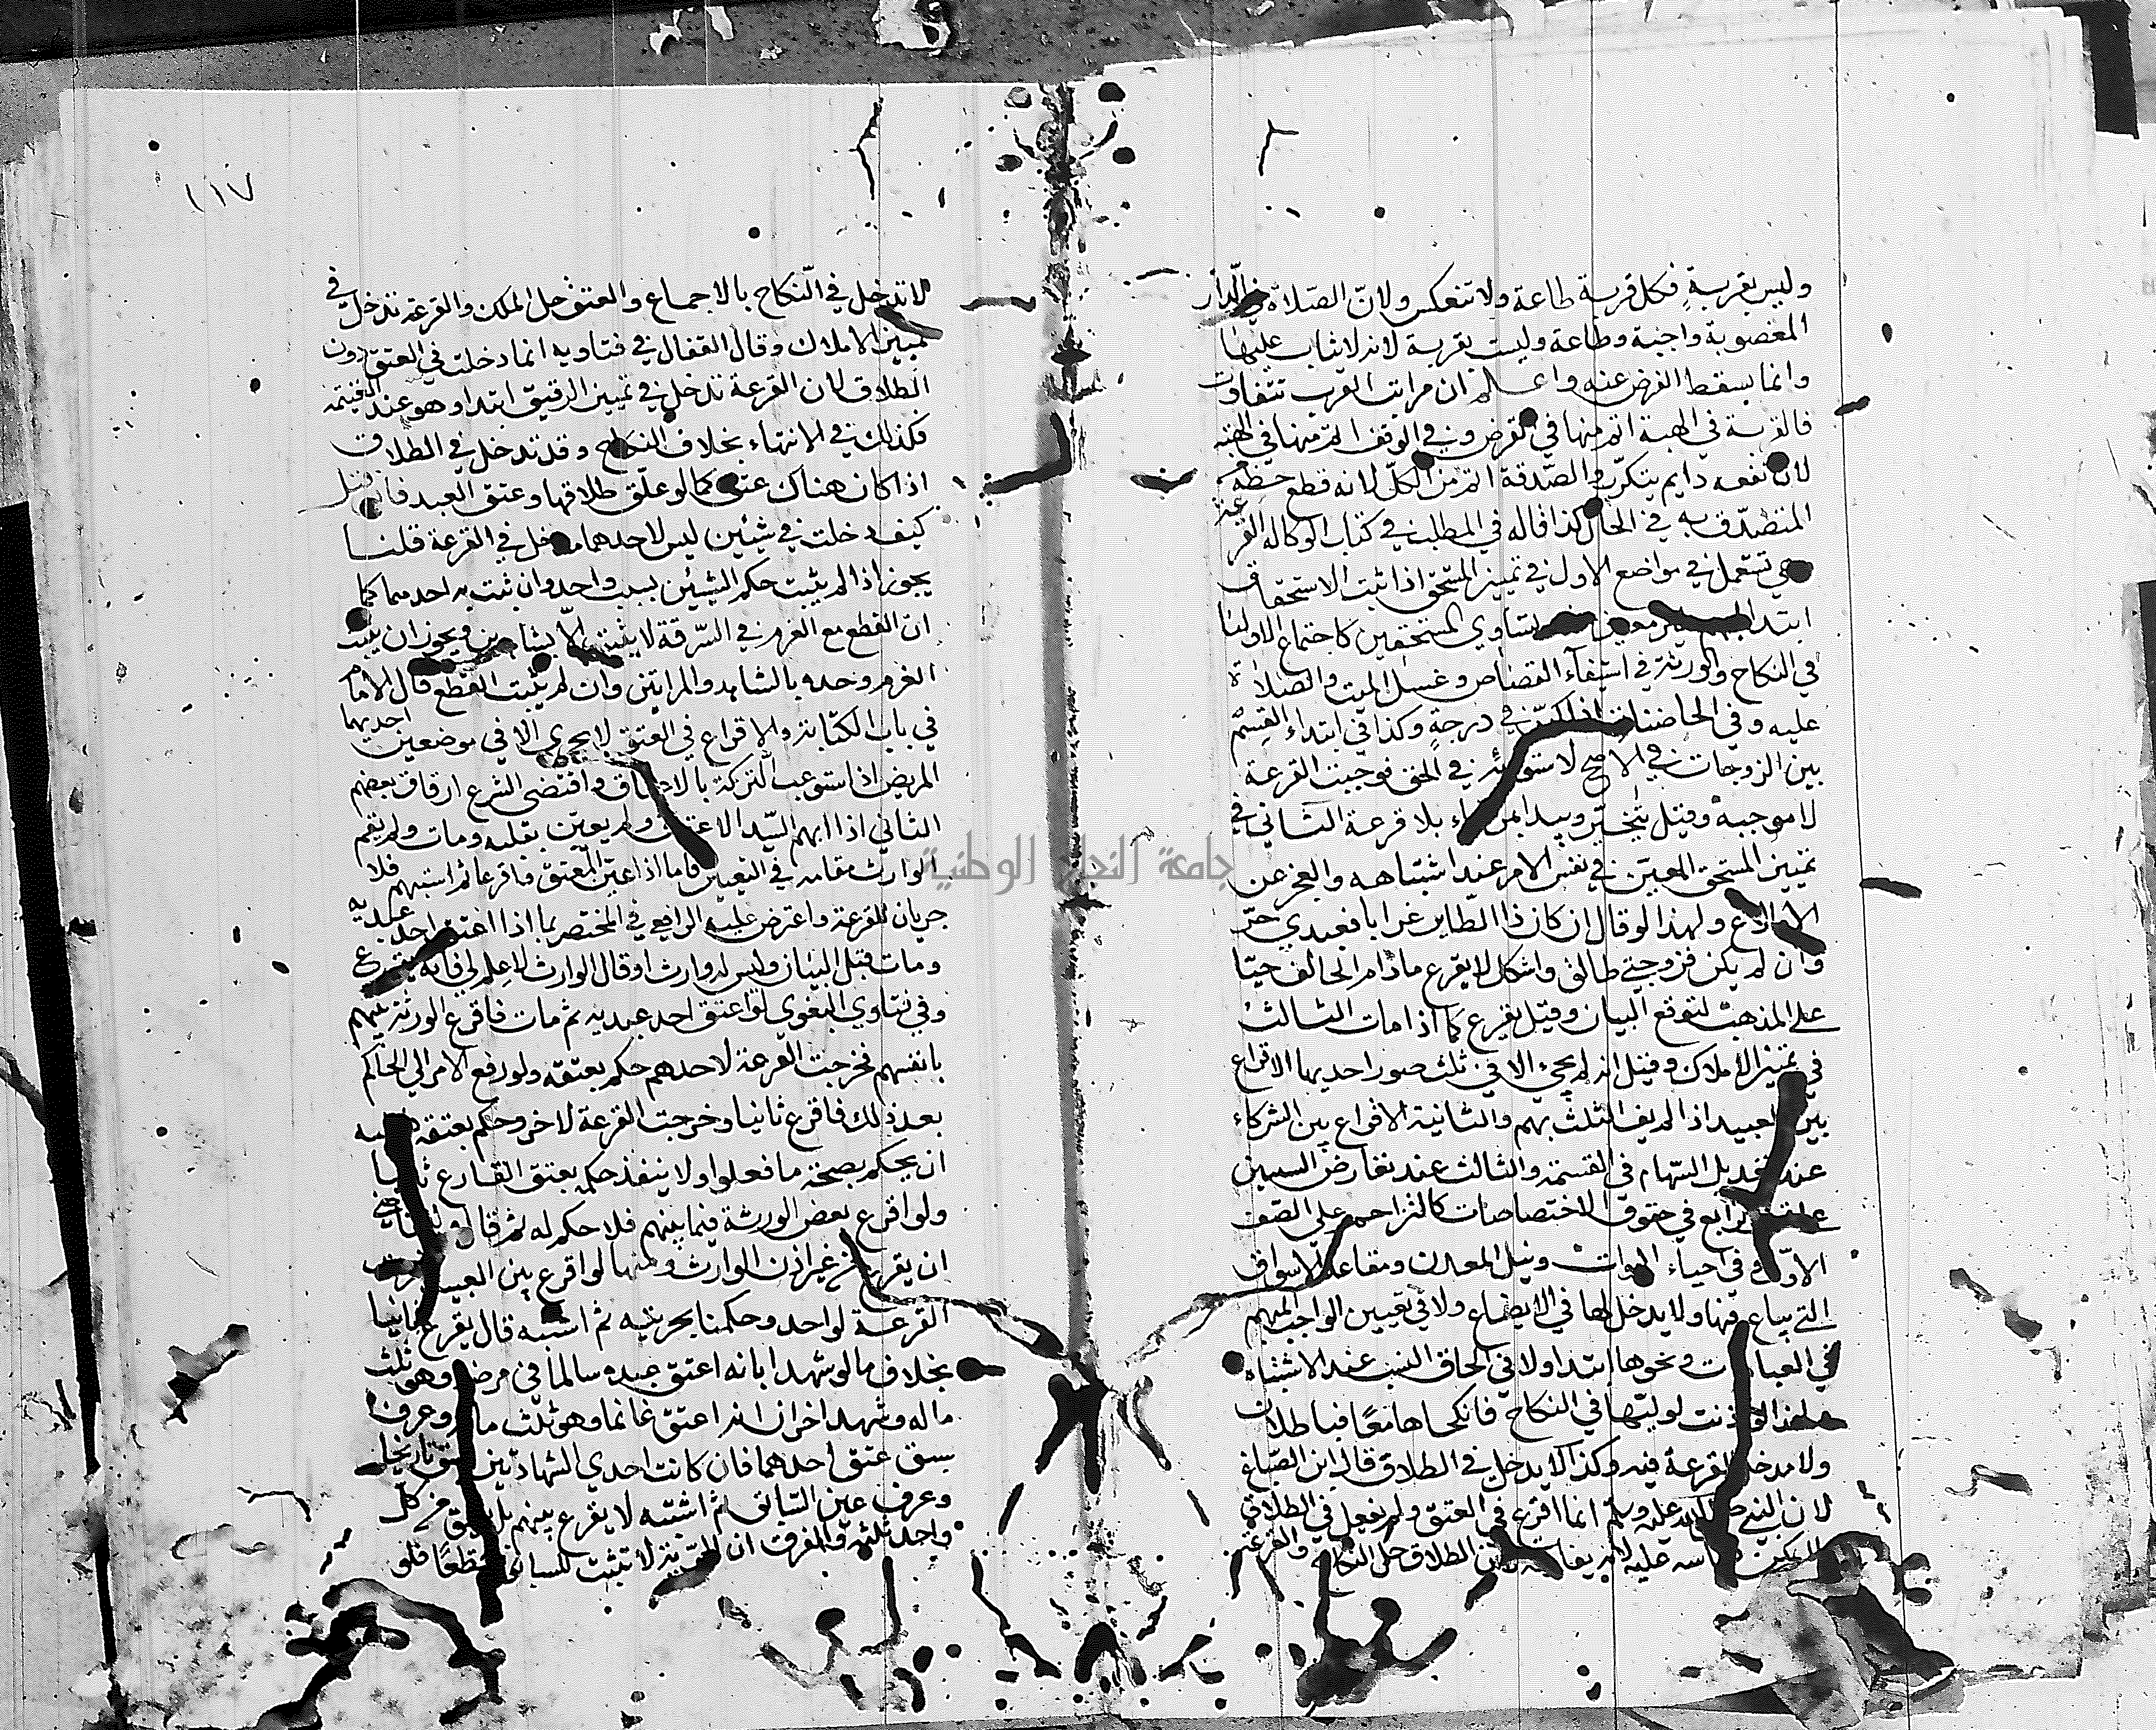 وليس بقربة فكل قربة طاعة ولا تنعكس ولان الصلاة في الدار
المغصوبة واجبة وطاعة وليست بقربة لانه لا يثاب عليها
وانما يسقط الفرض عنه واعلم ان مراتب القرب تتفاوت
فالقربة في الهبة اتم منها في القرض وفي الوقف اتم منها في الهبة
لان نفعه دايم يتكرر والصدقة اتم من الكل لانه قطع حظه
المتصدق به في الحال كذا قاله في المطلب في كتاب الوكالة القرعة
هي تستعمل في مواضع الاول في تمييز المستحق اذا ثبت الاستحقاق
ابتداء لتساوي المستحقين كاجتماع الاوليا
في النكاح والورثة في استيفاء القصاص وغسل الميت والصلاة
عليه وفي الحاضنات اذا كن في درجة وكذا في ابتداء القسم
بين الزوجات في الاصح لاستوائهن في الحق فوجبت القرعة
لا موجبه وقيل يتخير ويبدا بمن شاء بلا قرعة الثاني في
تمييز المستحق المعين في نفس الامر عند اشتباهه والعجز عن
الاطلاع ولهذا لو قال ان كان ذا الطاير غرابا فعبدي حر
وان لم يكن فزوجتي طالق واشكل لا يقرع ما دام الحالف حيا
على المذهب لتوقع البيان وقيل يقرع كما اذا مات الثالث
في تمييز الاملاك وقيل انه لم يجئ الا في ثلث صور احديها الاقراع
بين العبيد اذا لم يف الثلث بهم والثانية الاقراع بين الشركاء
عند تعديل السهام في القسمة والثالث عند تعارض البينتين
الرابع في حقوق الاختصاصات كالتزاحم على الصف
الاول وفي احياء الموات ونيل المعدن ومقاعد الاسواق
التي يباع فيها ولا يدخل لها في الابضاع ولا في تعيين الواجب المبهم
في العبادات ونحوها ابتداء ولا في الحاق النسب عند الاشتباه
اذنت لوليها في النكاح فانكحاها معا فباطلان
ولا مدخل للقرعة فيه وكذا لا يدخل في الطلاق قال ابن الصباغ
لان النبي صلى الله عليه وسلم انما اقرع في العتق ولم يفعل في الطلاق
ولا يمكن قياسه عليه لانه الطلاق حل النكاح والقرعة
لا تدخل في النكاح بالاجماع والعتق حل الملك والقرعة تدخل في
تمييز الاملاك وقال القفال في فتاويه انما دخلت في العتق دون
الطلاق لان القرعة تدخل في تمييز الرقيق ابتدا وهو عند القسمة
فكذلك في الانتهاء بخلاف النكاح وقد تدخل في الطلاق
اذا كان هناك عتق كما لو علق طلاقها وعتق العبد فان قيل
كيف دخلت في شيئين ليس لاحدهما مدخل في القرعة قلنا
يجوز اذا لم يثبت حكم الشيئين بسبب واحد وان ثبت به احدهما كما
ان القطع مع الغرم في السرقة لا يثبت الا بشاهدين ويجوز ان يثبت
الغرم وحده بالشاهد والمراتين وان لم يثبت القطع قال الامام
في باب الكتابة والاقراع في العتق لا يجري الا في موضعين احديهما
المريض اذا استوعب التركة بالاعتاق واقتضى الشرع ارقاق بعضهم
الثاني اذا ابهم السيد الاعتاق ولم يعين بقلبه ومات ولم يقم
الوارث مقامه في التعيين فاما اذا عين المعتق فاقرعا ثم استبهم فلا
جريان للقرعة واعترض عليه الرافعي في المختصر بما اذا اعتق احد عبديه
ومات قبل البيان وليس له وارث او قال الوارث لا علم لي فانه يقرع
وفي فتاوي البغوي لو اعتق احد عبديه ثم مات فاقرع الورثة بينهم
بانفسهم فخرجت القرعة لاحدهم حكم بعتقه ولو رفع الامر الى الحاكم
بعد ذلك فاقرع ثانيا وخرجت القرعة لاخر وحكم بعتقه
ان يحكم بصحة ما فعلوا ولا ينفذ حكمه بعتق القارع ثانيا
ولو اقرع بعض الورثة فيما بينهم فلا حكم له ثم قال
ان يقرع من غير اذن الوارث ومنها لو اقرع بين العبيد
القرعة لواحد وحكمنا بحريته ثم اشتبه قال يقرع ثانيا
بخلاف ما لو شهدا بانه اعتق عبده سالما في مرضه وهو ثلث
ماله وشهد اخران انه اعتق غانما وهو ثلث ماله وعرف
سبق عتق احدهما فان كانت احدي الشهادتين اسبق تاريخا
وعرف عين السابق ثم اشتبه لا يقرع بينهم بل يعتق من كل
واحد ثلثه والفرق ان القرينة لا تثبت للسابق قطعا فلو
١١٧
جامعة النجاح الوطنية